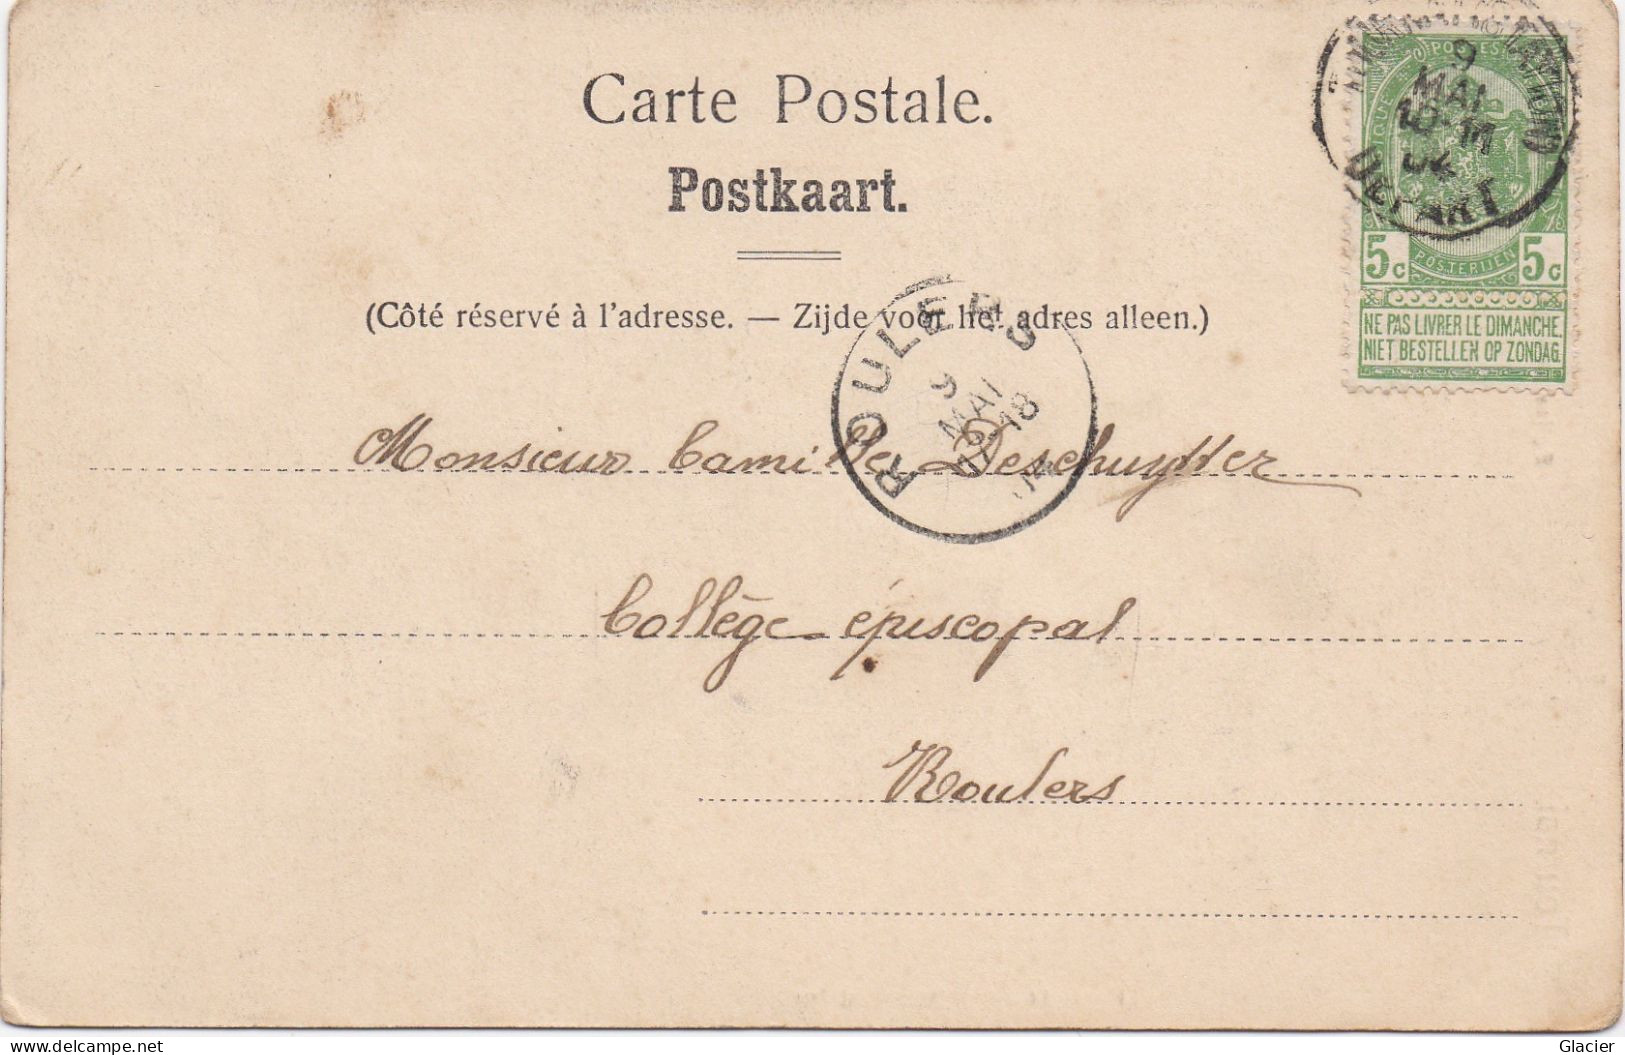 Carte Postale.
Postkaart.
(Côté réservé à l'adresse. — Zijde voor het adres alleen.)
9
MAI
10-11
DEPART
POSTERIJEN
5c 5c
NE PAS LIVRER LE DIMANCHE.
NIET BESTELLEN OP ZONDAG.
ROULERS
9
MAI
Monsieur Camille Deschuytter
Collège épiscopal
Roulers
www.delcampe.net
Glacier